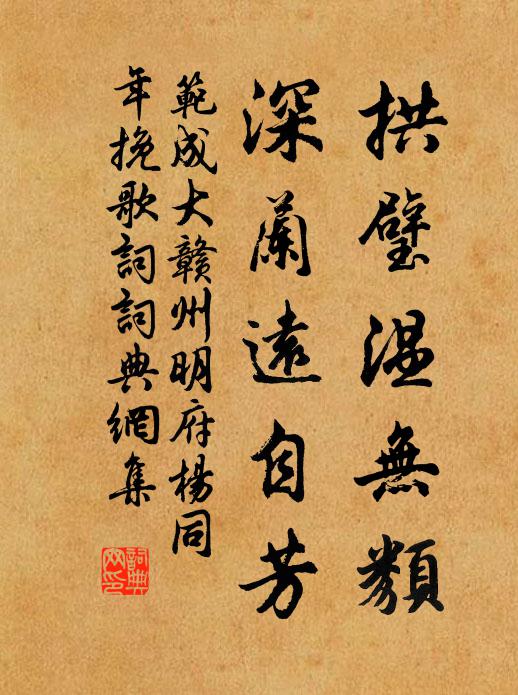 拱璧温無纇
深蘭遠自芳
範成大贛州明府楊同
年挽歌詞詞典網集
詞典网印